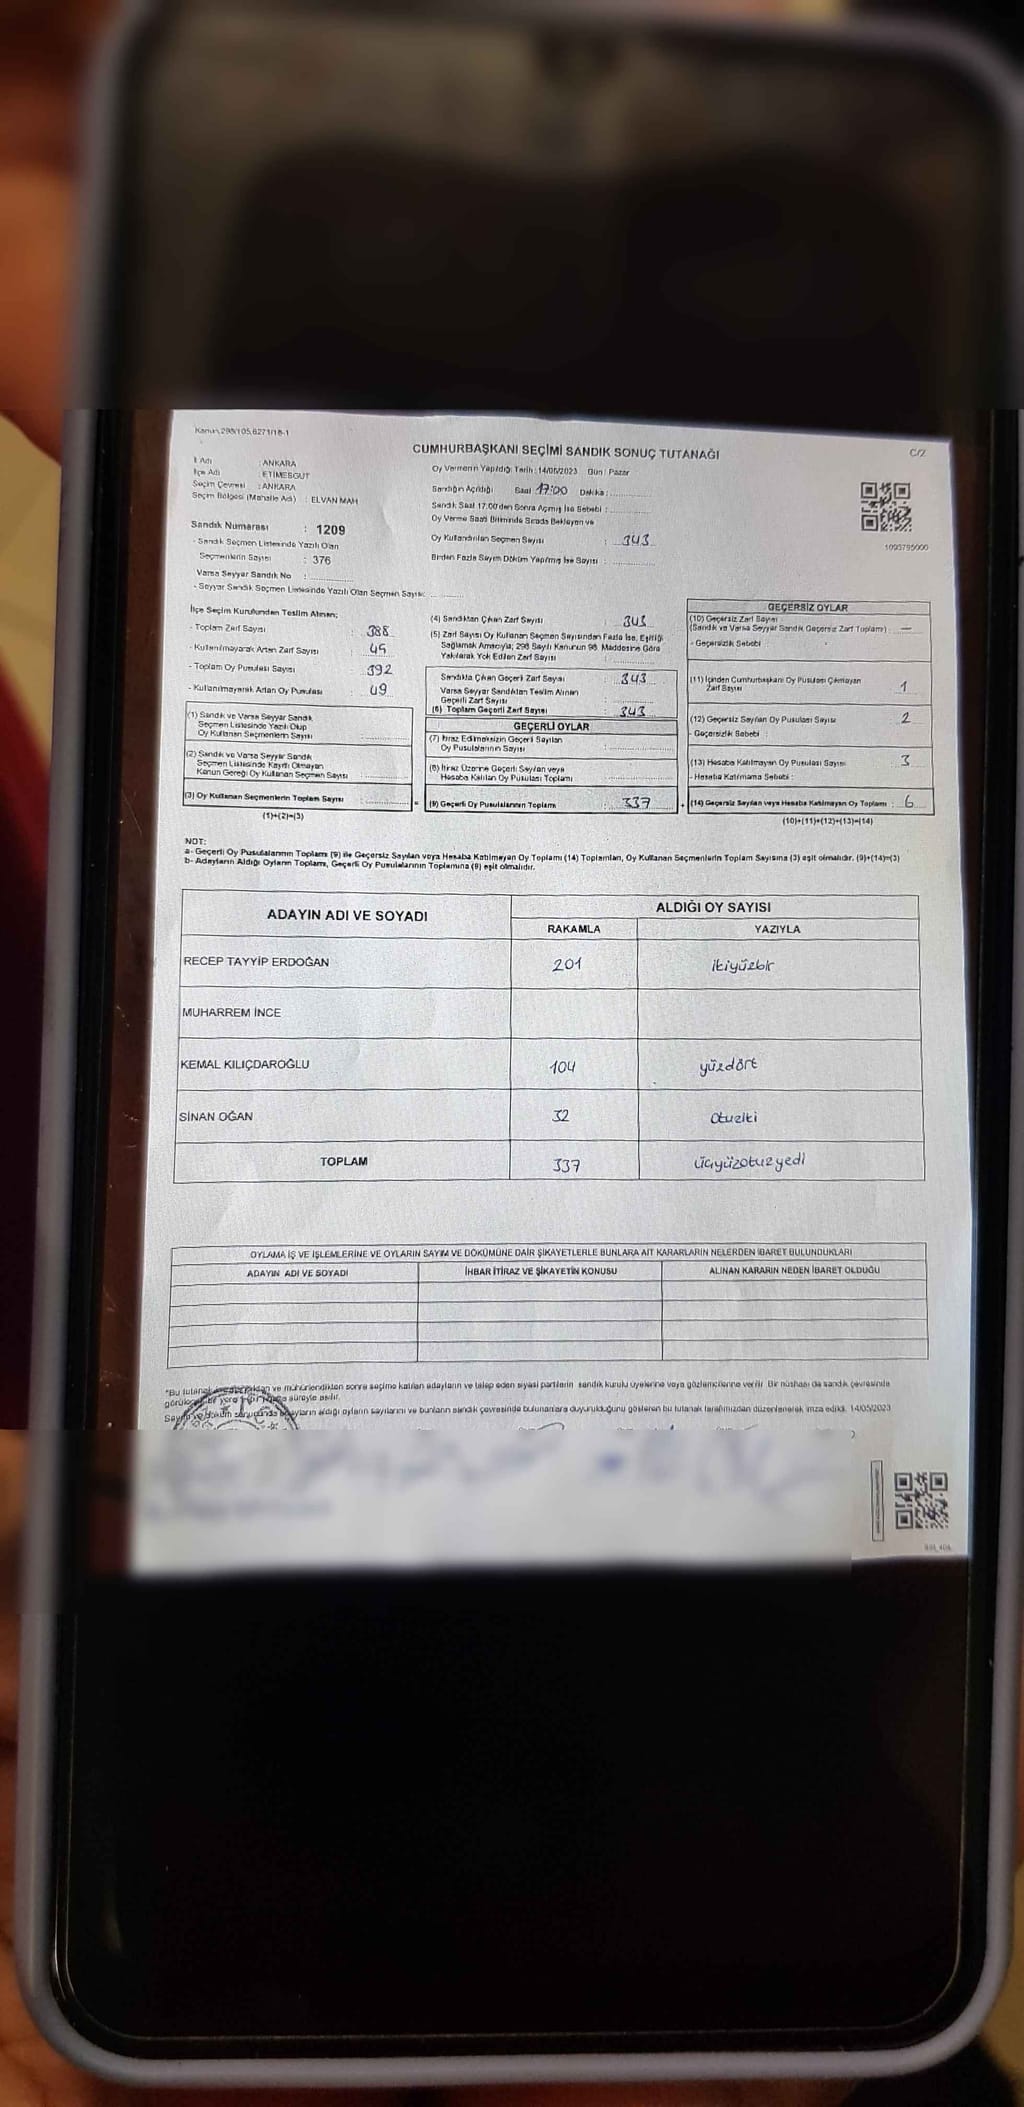 Kanun 298/105,6271/18-1
CUMHURBAŞKANI SEÇİMİ SANDIK SONUÇ TUTANAĞI
C/Z
İl Adı : ANKARA
İlçe Adı : ETİMESGUT
Seçim Çevresi : ANKARA
Seçim Bölgesi (Mahalle Adı) : ELVAN MAH
Sandık Numarası : 1209
- Sandık Seçmen Listesinde Yazılı Olan
Seçmenlerin Sayısı : 376
Varsa Seyyar Sandık No :
- Seyyar Sandık Seçmen Listesinde Yazılı Olan Seçmen Sayısı:
Oy Vermenin Yapıldığı Tarih : 14/05/2023 Gün : Pazar
Sandığın Açıldığı Saat 17:00 Dakika :
Sandık Saat 17:00'den Sonra Açılmış İse Sebebi :
Oy Verme Saati Bitiminde Sırada Bekleyen ve
Oy Kullandırılan Seçmen Sayısı : 343
Birden Fazla Sayım Döküm Yapılmış İse Sayısı :
1093795000
İlçe Seçim Kurulundan Teslim Alınan;
- Toplam Zarf Sayısı : 388
- Kullanılmayarak Artan Zarf Sayısı : 45
- Toplam Oy Pusulası Sayısı : 392
- Kullanılmayarak Artan Oy Pusulası : 49
(1) Sandık ve Varsa Seyyar Sandık
Seçmen Listesinde Yazılı Olup
Oy Kullanan Seçmenlerin Sayısı
(2) Sandık ve Varsa Seyyar Sandık
Seçmen Listesinde Kayıtlı Olmayan
Kanun Gereği Oy Kullanan Seçmen Sayısı
(3) Oy Kullanan Seçmenlerin Toplam Sayısı :
(1)+(2)=(3)
(4) Sandıktan Çıkan Zarf Sayısı : 343
(5) Zarf Sayısı Oy Kullanan Seçmen Sayısından Fazla İse, Eşitliği
Sağlamak Amacıyla; 298 Sayılı Kanunun 98. Maddesine Göre
Yakılarak Yok Edilen Zarf Sayısı :
Sandıkta Çıkan Geçerli Zarf Sayısı : 343
Varsa Seyyar Sandıktan Teslim Alınan
Geçerli Zarf Sayısı :
(6) Toplam Geçerli Zarf Sayısı : 343
GEÇERLİ OYLAR
(7) İtiraz Edilmeksizin Geçerli Sayılan
Oy Pusulalarının Sayısı :
(8) İtiraz Üzerine Geçerli Sayılan veya
Hesaba Katılan Oy Pusulası Toplamı :
(9) Geçerli Oy Pusulalarının Toplamı : 337
GEÇERSİZ OYLAR
(10) Geçersiz Zarf Sayısı
(Sandık ve Varsa Seyyar Sandık Geçersiz Zarf Toplamı) : —
- Geçersizlik Sebebi :
(11) İçinden Cumhurbaşkanı Oy Pusulası Çıkmayan
Zarf Sayısı : 1
(12) Geçersiz Sayılan Oy Pusulası Sayısı : 2
- Geçersizlik Sebebi :
(13) Hesaba Katılmayan Oy Pusulası Sayısı : 3
- Hesaba Katılmama Sebebi :
(14) Geçersiz Sayılan veya Hesaba Katılmayan Oy Toplamı : 6
(10)+(11)+(12)+(13)=(14)
NOT:
a- Geçerli Oy Pusulalarının Toplamı (9) ile Geçersiz Sayılan veya Hesaba Katılmayan Oy Toplamı (14) Toplamları, Oy Kullanan Seçmenlerin Toplam Sayısına (3) eşit olmalıdır. (9)+(14)=(3)
b- Adayların Aldığı Oyların Toplamı, Geçerli Oy Pusulalarının Toplamına (9) eşit olmalıdır.
ADAYIN ADI VE SOYADI
ALDIĞI OY SAYISI
RAKAMLA YAZIYLA
RECEP TAYYİP ERDOĞAN 201 ikiyüzbir
MUHARREM İNCE
KEMAL KILIÇDAROĞLU 104 yüzdört
SİNAN OĞAN 32 otuziki
TOPLAM 337 üçyüzotuzyedi
OYLAMA İŞ VE İŞLEMLERİNE VE OYLARIN SAYIM VE DÖKÜMÜNE DAİR ŞİKAYETLERLE BUNLARA AİT KARARLARIN NELERDEN İBARET BULUNDUKLARI
ADAYIN ADI VE SOYADI İHBAR İTİRAZ VE ŞİKAYETİN KONUSU ALINAN KARARIN NEDEN İBARET OLDUĞU
ve mühürlendikten sonra seçime katılan adayların ve talep eden siyasi partilerin sandık kurulu üyelerine veya gözlemcilerine verilir. Bir nüshası da sandık çevresinde
süreyle asılır.
adayların aldığı oyların sayılarını ve bunların sandık çevresinde bulunanlara duyurulduğunu gösteren bu tutanak tarafımızdan düzenlenerek imza edildi. 14/05/2023